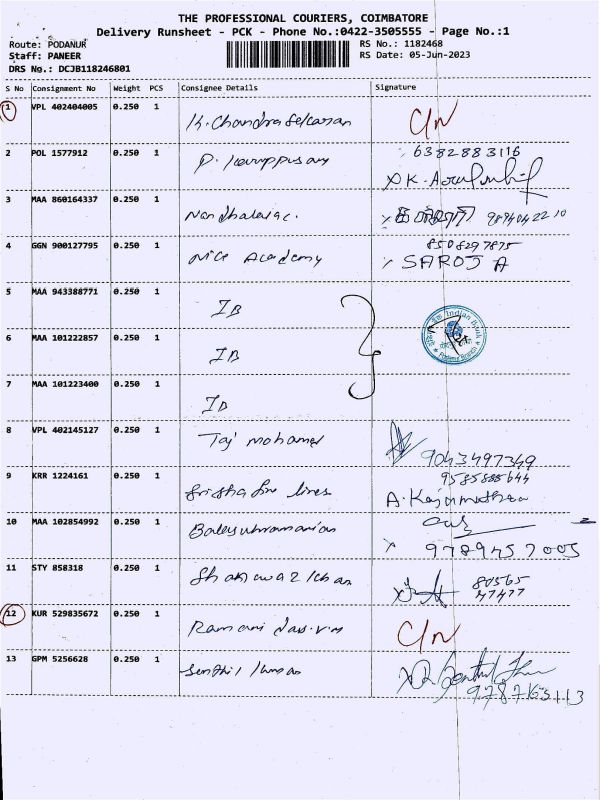 THE PROFESSIONAL COURIERS, COIMBATORE
Delivery Runsheet - PCK - Phone No.:0422-3505555 - Page No.:1
Route: PODANUR RS No.: 1182468
Staff: PANEER RS Date: 05-Jun-2023
DRS No.: DCJB118246801
S No Consignment No Weight PCS Consignee Details Signature
1 VPL 402404005 0.250 1 K. Chandraselvaran C/N
2 POL 1577912 0.250 1 P. Karuppusamy 6382883116
3 MAA 860164337 0.250 1 Nandhalalac. 9894042210
4 GGN 900127795 0.250 1 Nice Academy 8508297875
SAROJ A
5 MAA 943388771 0.250 1 IB
Indian Bank
6 MAA 101222857 0.250 1 IB
7 MAA 101223400 0.250 1 IB
8 VPL 402145127 0.250 1 Taj mohamed 9043497349
9 KRR 1224161 0.250 1 lines 9585885644
10 MAA 102854992 0.250 1 Balasubramanian
9789457005
11 STY 858318 0.250 1 80565
47477
12 KUR 529835672 0.250 1 Ramani C/N
13 GPM 5256628 0.250 1 Senthil Kumar
9787163113